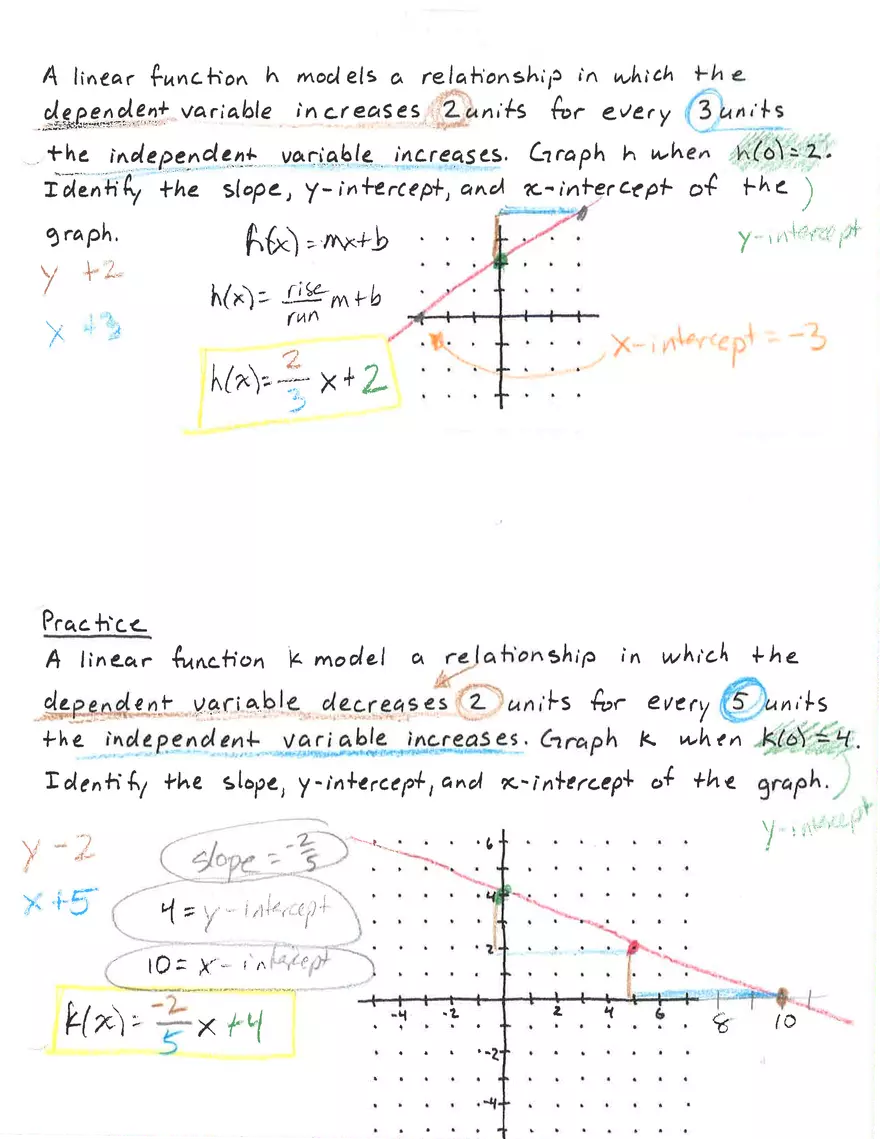 A linear function h models a relationship in which the
dependent variable increases 2 units for every 3 units
the independent variable increases. Graph h when h(0)=2.
Identify the slope, y-intercept, and x-intercept of the
graph.
y-intercept
h(x)=mx+b
y +2
x +3
h(x)= rise/run m+b
x-intercept = -3
h(x)= 2/3 x+2
Practice
A linear function k model a relationship in which the
dependent variable decreases 2 units for every 5 units
the independent variable increases. Graph k when k(0)=4.
Identify the slope, y-intercept, and x-intercept of the graph.
y-intercept
y -2
x +5
slope = -2/5
4 = y-intercept
10 = x-intercept
k(x)= -2/5 x +4
6
4
2
-4 -2 2 4 6 8 10
-2
-4